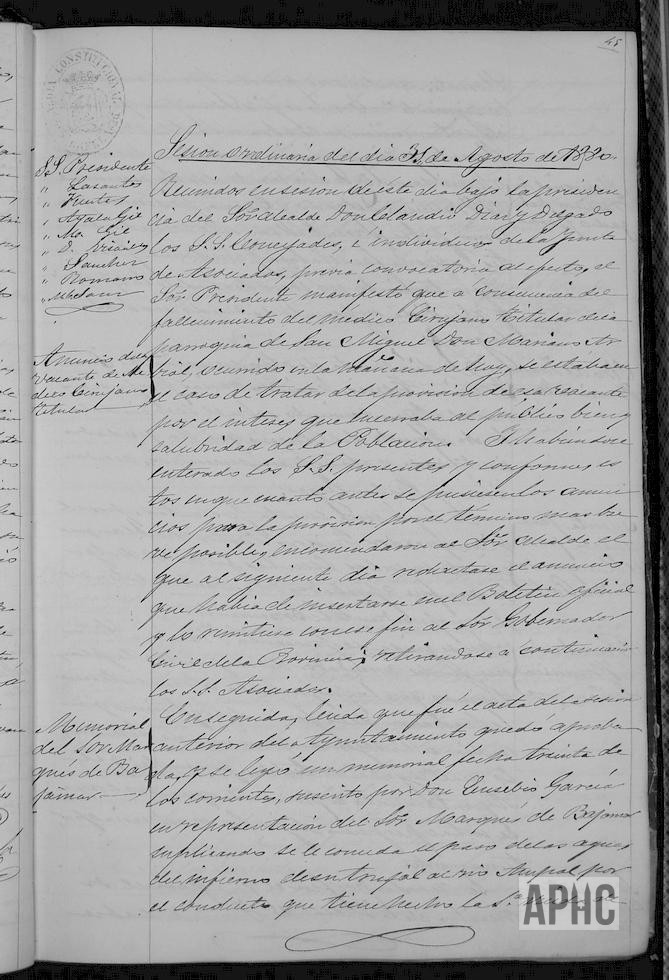 45
Sesion ordinaria del dia 31 de Agosto de 1880.
S.S. Presidente
" Lasantas
" Fuertes
" Ayala Gil
" Mo. Gil
" Sanchez
" Romano
Reunidos en sesion de este dia bajo la presiden
cia del Sor Alcalde Don Claudio Diaz y Delgado
los S.S. Concejales, é individuos de la Junta
de Asociados, previa convocatoria al efecto, el
Sor Presidente manifestó que á consecuencia del
fallecimiento del medico Cirujano Titular de la
parroquia de San Miguel Don Mariano Ar
bial, ocurrido en la mañana de hoy, se estaba en
el caso de tratar de la provision de esa vacante
por el interes que encerraba al publico bien y
salubridad de la Poblacion.
enterado los S.S. presentes y conformes es
tos en que cuanto antes se pusiesen los anun
cios para la provision por el término mas bre
ve posible, encomendaron al Sor Alcalde el
que al siguiente dia redactase el anuncio
que habia de insertarse en el Boletin oficial
y lo remitiese con ese fin al Sor Gobernador
Civil de la Provincia; retirandose a continuacion
los S.S. Asociados.
Anuncio de la
vacante de Me
dico Cirujano
Titular
Enseguida, leida que fué el acta de la sesion
anterior del Ayuntamiento quedó aproba
da, y se leyó un memorial fecha treinta de
los corrientes, suscrito por Don Eusebio García
en representacion del Sor Marqués de Bajamar
suplicando se le conceda el paso de las aguas
del infierno de su trujal al rio por
el conducto que tiene hecho la Sra
Memorial
del Sor Mar
qués de Ba
jamar
APHC